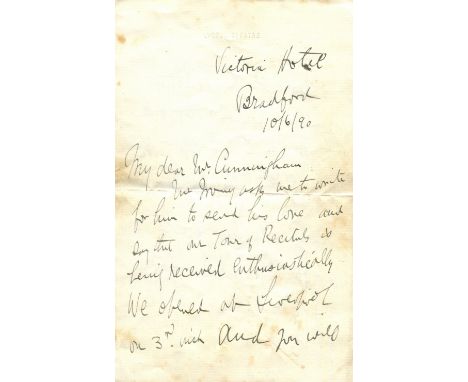 Victoria Hotel
Bradford
10/6/90
My dear Mr Cunningham
Mr Irving asks me to write
for him to send his love and
say that our Tour of Recitals is
being received enthusiastically
We opened at Liverpool
on 3rd inst and you will